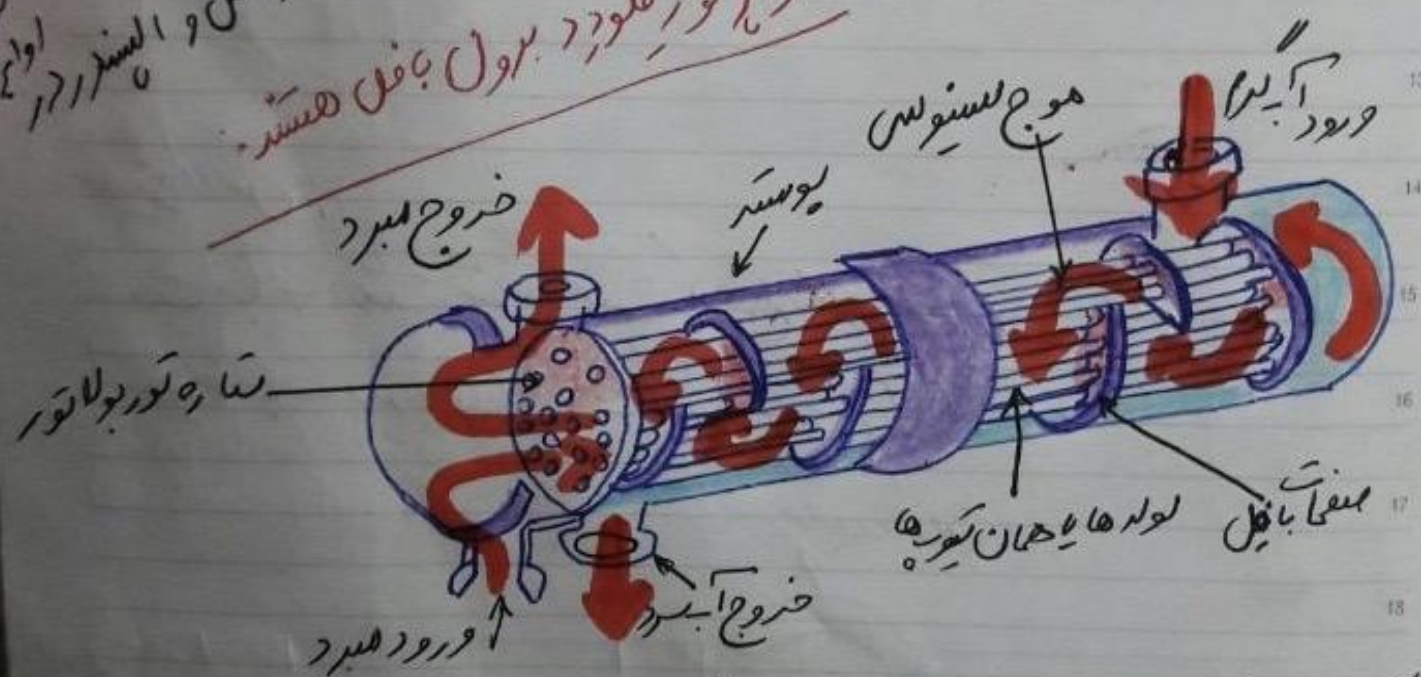 برول بافل هستند.
ورود آب گرم
موج سینوسی
پوسته
خروج مبرد
ستاره توربولاتور
صفحات بافل
لوله ها یا همان تیوب ها
خروج آب سرد
ورود مبرد
13
14
15
16
17
18